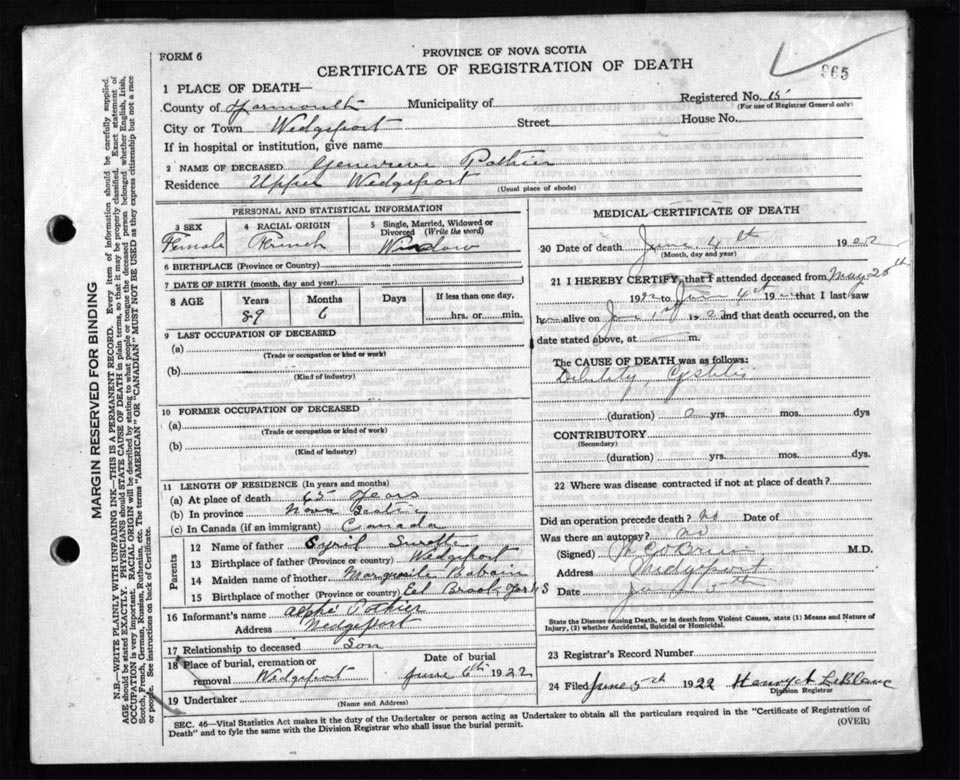 FORM 6
PROVINCE OF NOVA SCOTIA
CERTIFICATE OF REGISTRATION OF DEATH
965
1 PLACE OF DEATH—
County of Yarmouth Municipality of
Registered No. 15
(For use of Registrar General only)
City or Town Wedgeport Street House No.
If in hospital or institution, give name
2 NAME OF DECEASED Genevieve Pothier
Residence Upper Wedgeport
(Usual place of abode)
PERSONAL AND STATISTICAL INFORMATION
3 SEX
Female
4 RACIAL ORIGIN
French
5 Single, Married, Widowed or Divorced (Write the word)
6 BIRTHPLACE (Province or Country)
7 DATE OF BIRTH (month, day and year)
8 AGE Years Months Days If less than one day,
89 6 hrs. or min.
9 LAST OCCUPATION OF DECEASED
(a)
(Trade or occupation or kind of work)
(b)
(Kind of industry)
10 FORMER OCCUPATION OF DECEASED
(a)
(Trade or occupation or kind of work)
(b)
(Kind of industry)
11 LENGTH OF RESIDENCE (In years and months)
(a) At place of death 65 Years
(b) In province Nova Scotia
(c) In Canada (if an immigrant) Canada
Parents
12 Name of father Cyril Surette
13 Birthplace of father (Province or country) Wedgeport
14 Maiden name of mother Marguerite Babain
15 Birthplace of mother (Province or country) Eel Brook Yar N S
16 Informant's name Alphe Pothier
Address Wedgeport
17 Relationship to deceased Son
18 Place of burial, cremation or removal Wedgeport
Date of burial
June 6th 1922
19 Undertaker
(Name and Address)
MEDICAL CERTIFICATE OF DEATH
20 Date of death June 4th 1922
(Month, day and year)
21 I HEREBY CERTIFY, that I attended deceased from May 26th
1922 to June 4th 19 that I last saw
h alive on June 1st 1922 and that death occurred, on the
date stated above, at m.
The CAUSE OF DEATH was as follows:
Dibility, Cystitis
(duration) yrs. mos. dys
CONTRIBUTORY
(Secondary)
(duration) yrs. mos. dys.
22 Where was disease contracted if not at place of death?
Did an operation precede death? no Date of
Was there an autopsy? no
(Signed) M.D.
Address Wedgeport
Date June 5th
State the Disease causing Death, or in death from Violent Causes, state (1) Means and Nature of
Injury, (2) whether Accidental, Suicidal or Homicidal.
23 Registrar's Record Number
24 Filed June 5th 1922 Henry A LeBlanc
Division Registrar
SEC. 46—Vital Statistics Act makes it the duty of the Undertaker or person acting as Undertaker to obtain all the particulars required in the "Certificate of Registration of
Death" and to fyle the same with the Division Registrar who shall issue the burial permit.
(OVER)
MARGIN RESERVED FOR BINDING
N.B.—WRITE PLAINLY WITH UNFADING INK—THIS IS A PERMANENT RECORD. Every item of information should be carefully supplied.
AGE should be stated EXACTLY. PHYSICIANS should STATE CAUSE OF DEATH in plain terms, so that it may be properly classified. Exact statement of
OCCUPATION is very important. RACIAL ORIGIN will be described by stating to what people or tongue the deceased person belonged whether English, Irish,
Scotch, French, German, Russian, Ruthenian, etc. The terms "AMERICAN" OR "CANADIAN" MUST NOT BE USED as they express citizenship but not a race
or people. See instructions on back of Certificate.